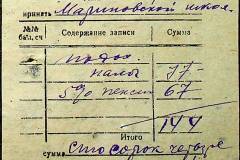 принять Мариновской школ.
№№ бал. сч Содержание записи Сумма
подох.
налог 77
5% пенсии 67
Итого 144
сумма Сто сорок четыре